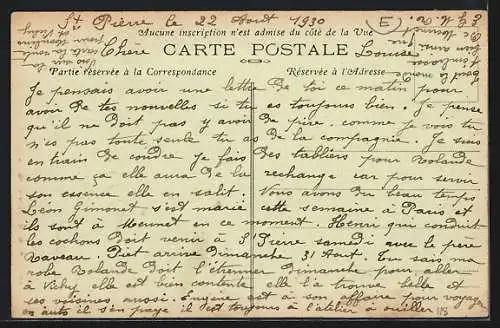 St Pierre le 22 Aout 1930
Aucune inscription n'est admise du côté de la Vue
CARTE POSTALE
Chère Louise
Partie réservée à la Correspondance
Réservée à l'Adresse
Je pensais avoir une lettre de toi ce matin pour
avoir de tes nouvelles si tu es toujours bien. Je pense
qu'il ne doit pas y avoir de pire. comme je vois tu
n'es pas toute seule tu as de la compagnie. Je suis
en train de coudre je fais des tabliers pour Rolande
comme ça elle aura de la rechange car pour servir
son essence elle en salit. Vous avons du beau temps
Léon Gimonet s'est marié cette semaine à Paris et
ils sont à Meunet en ce moment. Henri qui conduit
les cochons doit venir à St Pierre samedi avec le père
Naveau. Piet arrive Dimanche 31 Aout. Tu sais ma
robe Rolande doit l'étrenner Dimanche pour aller
à Vichy elle est bien contente elle l'a trouve belle et
ses voisines aussi. Eugène est à son affaire pour voyager
en auto il s'en paye il est toujours à l'atelier à
118